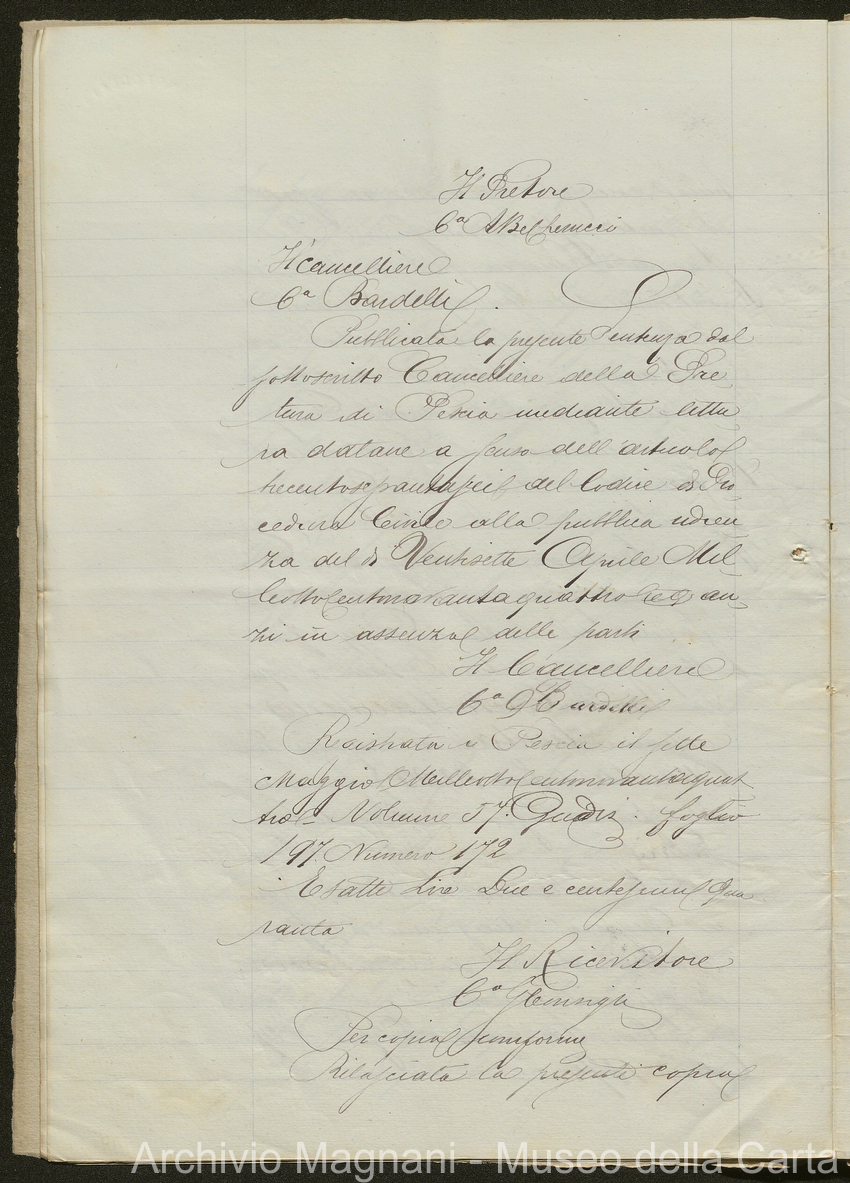 Il Pretore
6ª A Bel
Il cancelliere
6ª Bardelli
Pubblicata la presente Sentenza dal
sottoscritto Cancelliere della Pre
tura di Pescia mediante lettu
ra datane a senso dell'articolo
trecentosessantasei del Codice di Pro
cedura Civile alla pubblica udien
za del dì Ventisette Aprile Mil-
leottocentonovantaquattro ed an
zi in assenza delle parti
Il Cancelliere
6ª Bardelli
Registrata a Pescia il sette
Maggio Milleottocentonovantaquat
tro = Volume 57. Giudiz. foglio
197. Numero 172
Esatte Lire Due e centesimi Qua
ranta
Il Ricevitore
6ª
Per copia conforme
Rilasciata la presente copia
Archivio Magnani - Museo della Carta